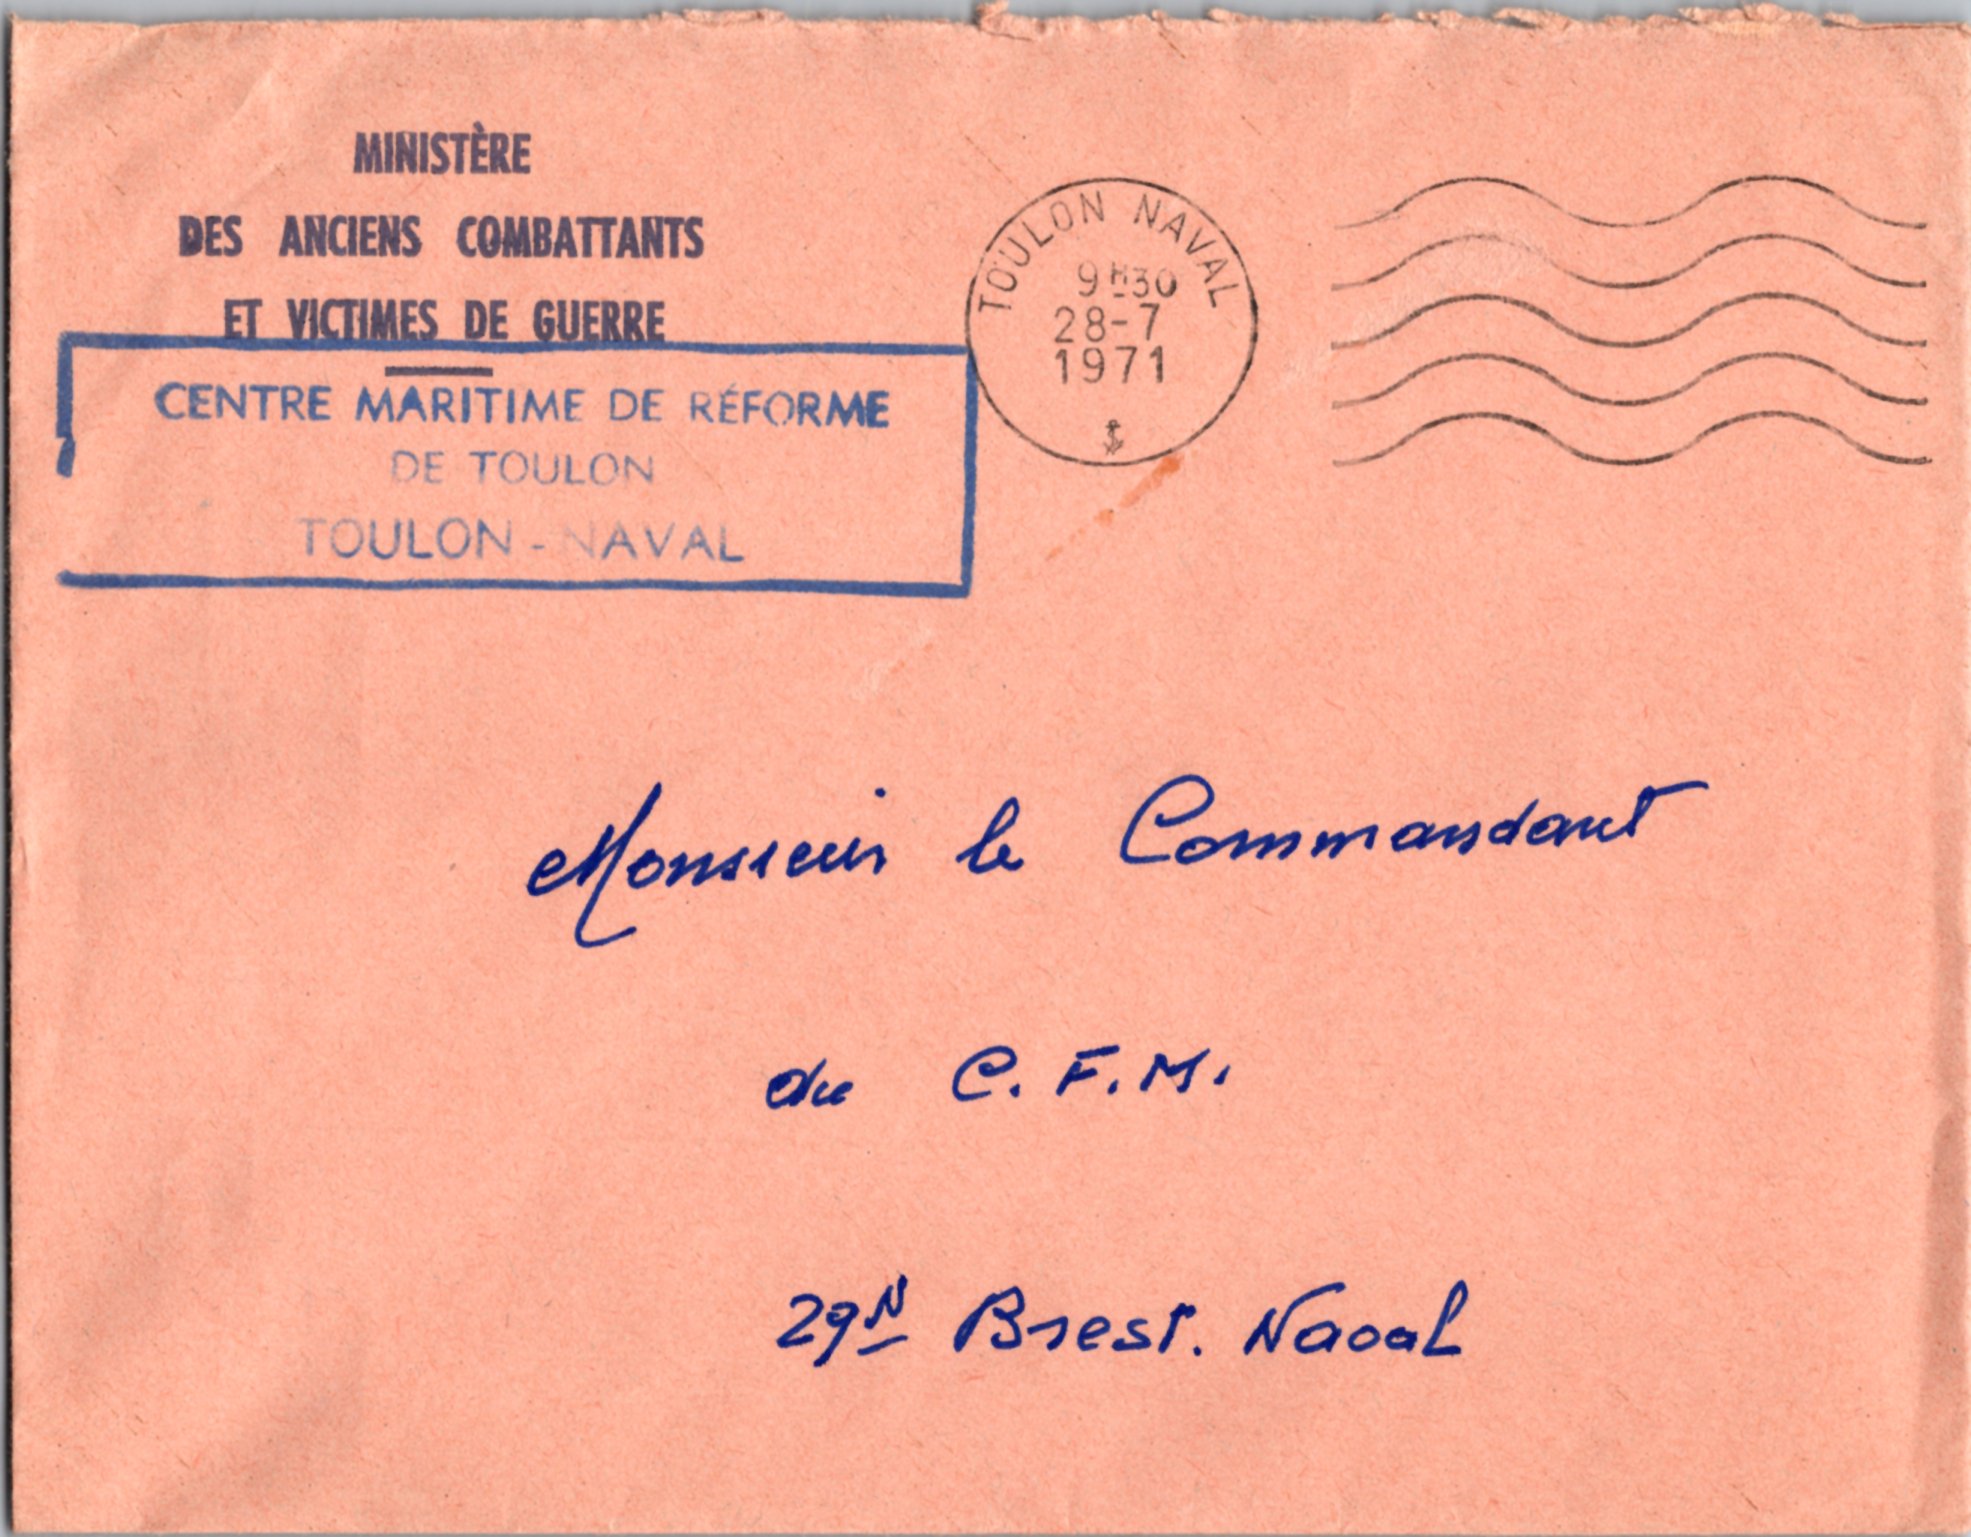 MINISTÈRE
DES ANCIENS COMBATTANTS
ET VICTIMES DE GUERRE
CENTRE MARITIME DE RÉFORME
DE TOULON
TOULON - NAVAL
TOULON NAVAL
9H30
28-7
1971
Monsieur le Commandant
du C. F. M.
29N Brest. Naval